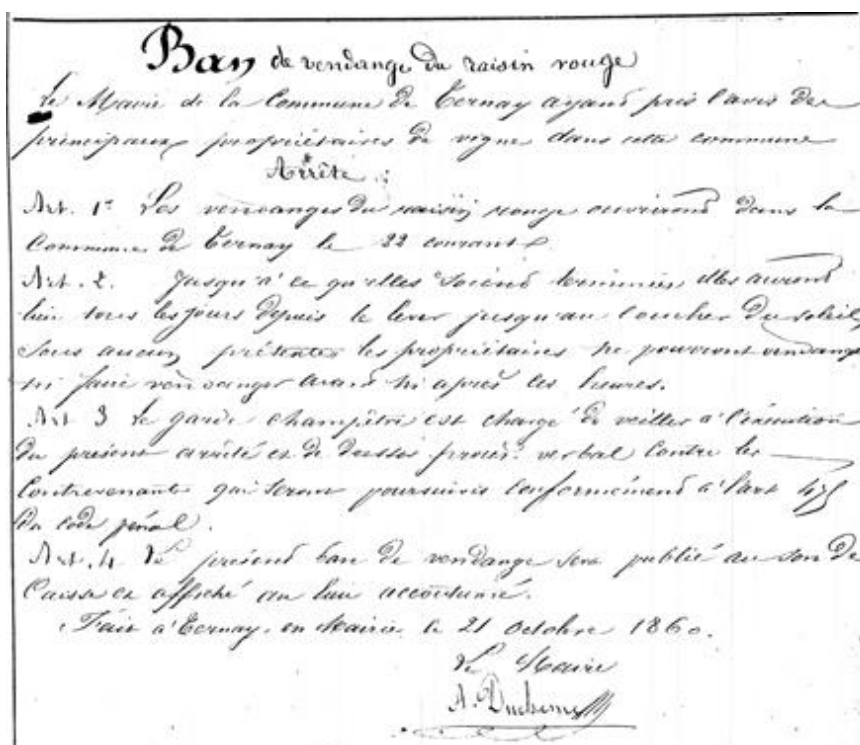 Ban de vendange du raisin rouge
Le Maire de la Commune de Ternay ayant pris l'avis des
principaux propriétaires de vigne dans cette commune
Arrête :
Art. 1er Les vendanges du raisin rouge ouvriront dans la
Commune de Ternay le 22 courant.
Art. 2. Jusqu'à ce qu'elles soient terminées elles auront
lieu tous les jours depuis le lever jusqu'au coucher du soleil,
sous aucun prétexte les propriétaires ne pourront vendanger
ni faire vendanger avant ni après ces heures.
Art 3 Le garde champêtre est chargé de veiller à l'exécution
du présent arrêté et de dresser procès-verbal contre les
Contrevenants qui seront poursuivis conformément à l'art 475
du Code pénal.
Art. 4 Le présent ban de vendange sera publié au son de
Caisse et affiché au lieu accoutumé.
Fait à Ternay, en Mairie, le 21 Octobre 1860.
Le Maire
A. Duchesne